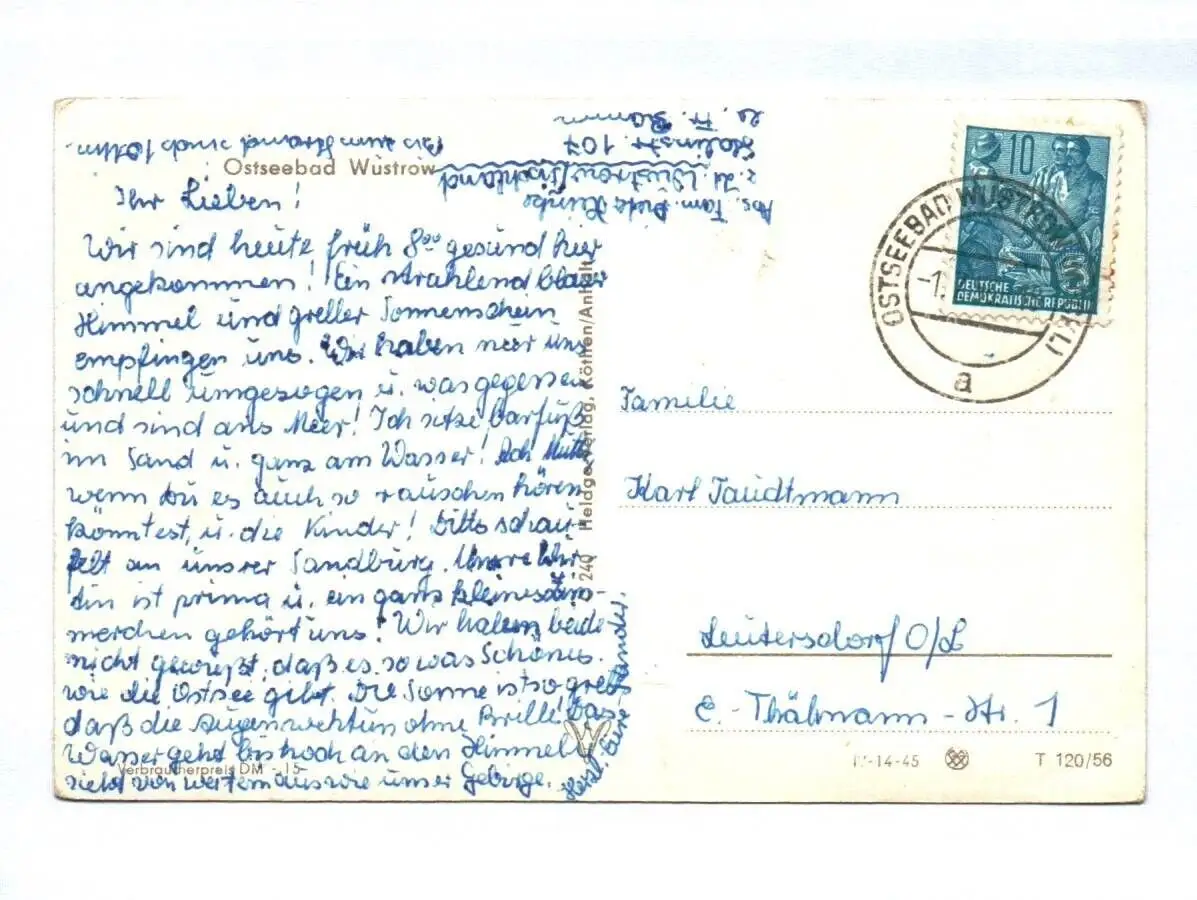 Ostseebad Wustrow
Ihr Lieben!
Wir sind heute früh 8⁰⁰ gesund hier
angekommen! Ein strahlend blauer
Himmel und greller Sonnenschein
empfingen uns. Wir haben nur uns
schnell umgezogen u. was gegessen
und sind ans Meer! Ich sitze barfuß
im Sand u. ganz am Wasser! Ach Mutti
wenn Du es auch so rauschen hören
könntest, u. die Kinder! Ditts schau-
felt an unsrer Sandburg. Unsre Wir-
tin ist prima u. ein ganz kleines Zim-
merchen gehört uns! Wir haben beide
nicht gewußt, daß es so was Schönes
wie die Ostsee gibt. Die Sonne ist so grell
daß die Augen weh tun ohne Brille! Das
Wasser geht bis hoch an den Himmel u.
sieht von weitem aus wie unser Gebirge.
Herzl. Eure
Bis zum Strand sind's 10 Min.
Abs. Fam. Heinke
z. Zt. Wustrow/Fischland
Stalinstr. 107
b. Fr.
240 Heldge-Verlag, Köthen/Anhalt
Verbraucherpreis DM -.15
10
DEUTSCHE
DEMOKRATISCHE REPUBLIK
OSTSEEBAD WUSTROW
-1.
a
Familie
Karl Taudtmann
Leutersdorf O/L
E.-Thälmann-Str. 1
-14-45
T 120/56